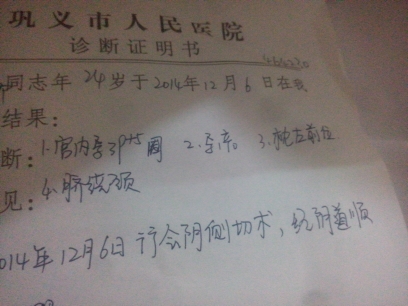 巩义市人民医院
诊断证明书
同志年 24 岁于2014年12月6日在我
结果:
断: 1.宫内孕39+5周 2.孕1产0 3.枕左前位
见: 4.脐绕颈
2014年12月6日 行会阴侧切术,经阴道顺